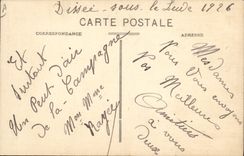 Dissé - sous - le Lude 1926
CARTE POSTALE
CORRESPONDANCE
ADRESSE
Et
Surtout
Un Petit Pair
De la Campagne
Mr Mme
Mesdames
Nous Vous envoyons
Nos Meilleures
Amitiés
à vous
Deux